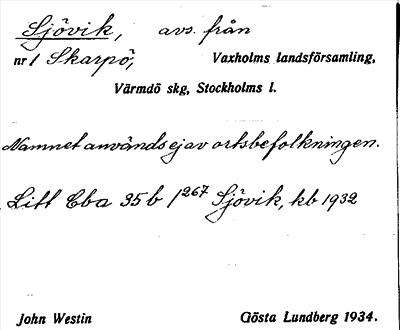 Sjövik, avs. från
nr 1 Skarpö, Vaxholms landsförsamling,
Värmdö skg, Stockholms l.
Namnet användsejav ortsbefolkningen.
Litt Cba 35b 1267 Sjövik, kb 1932
John Westin Gösta Lundberg 1934.